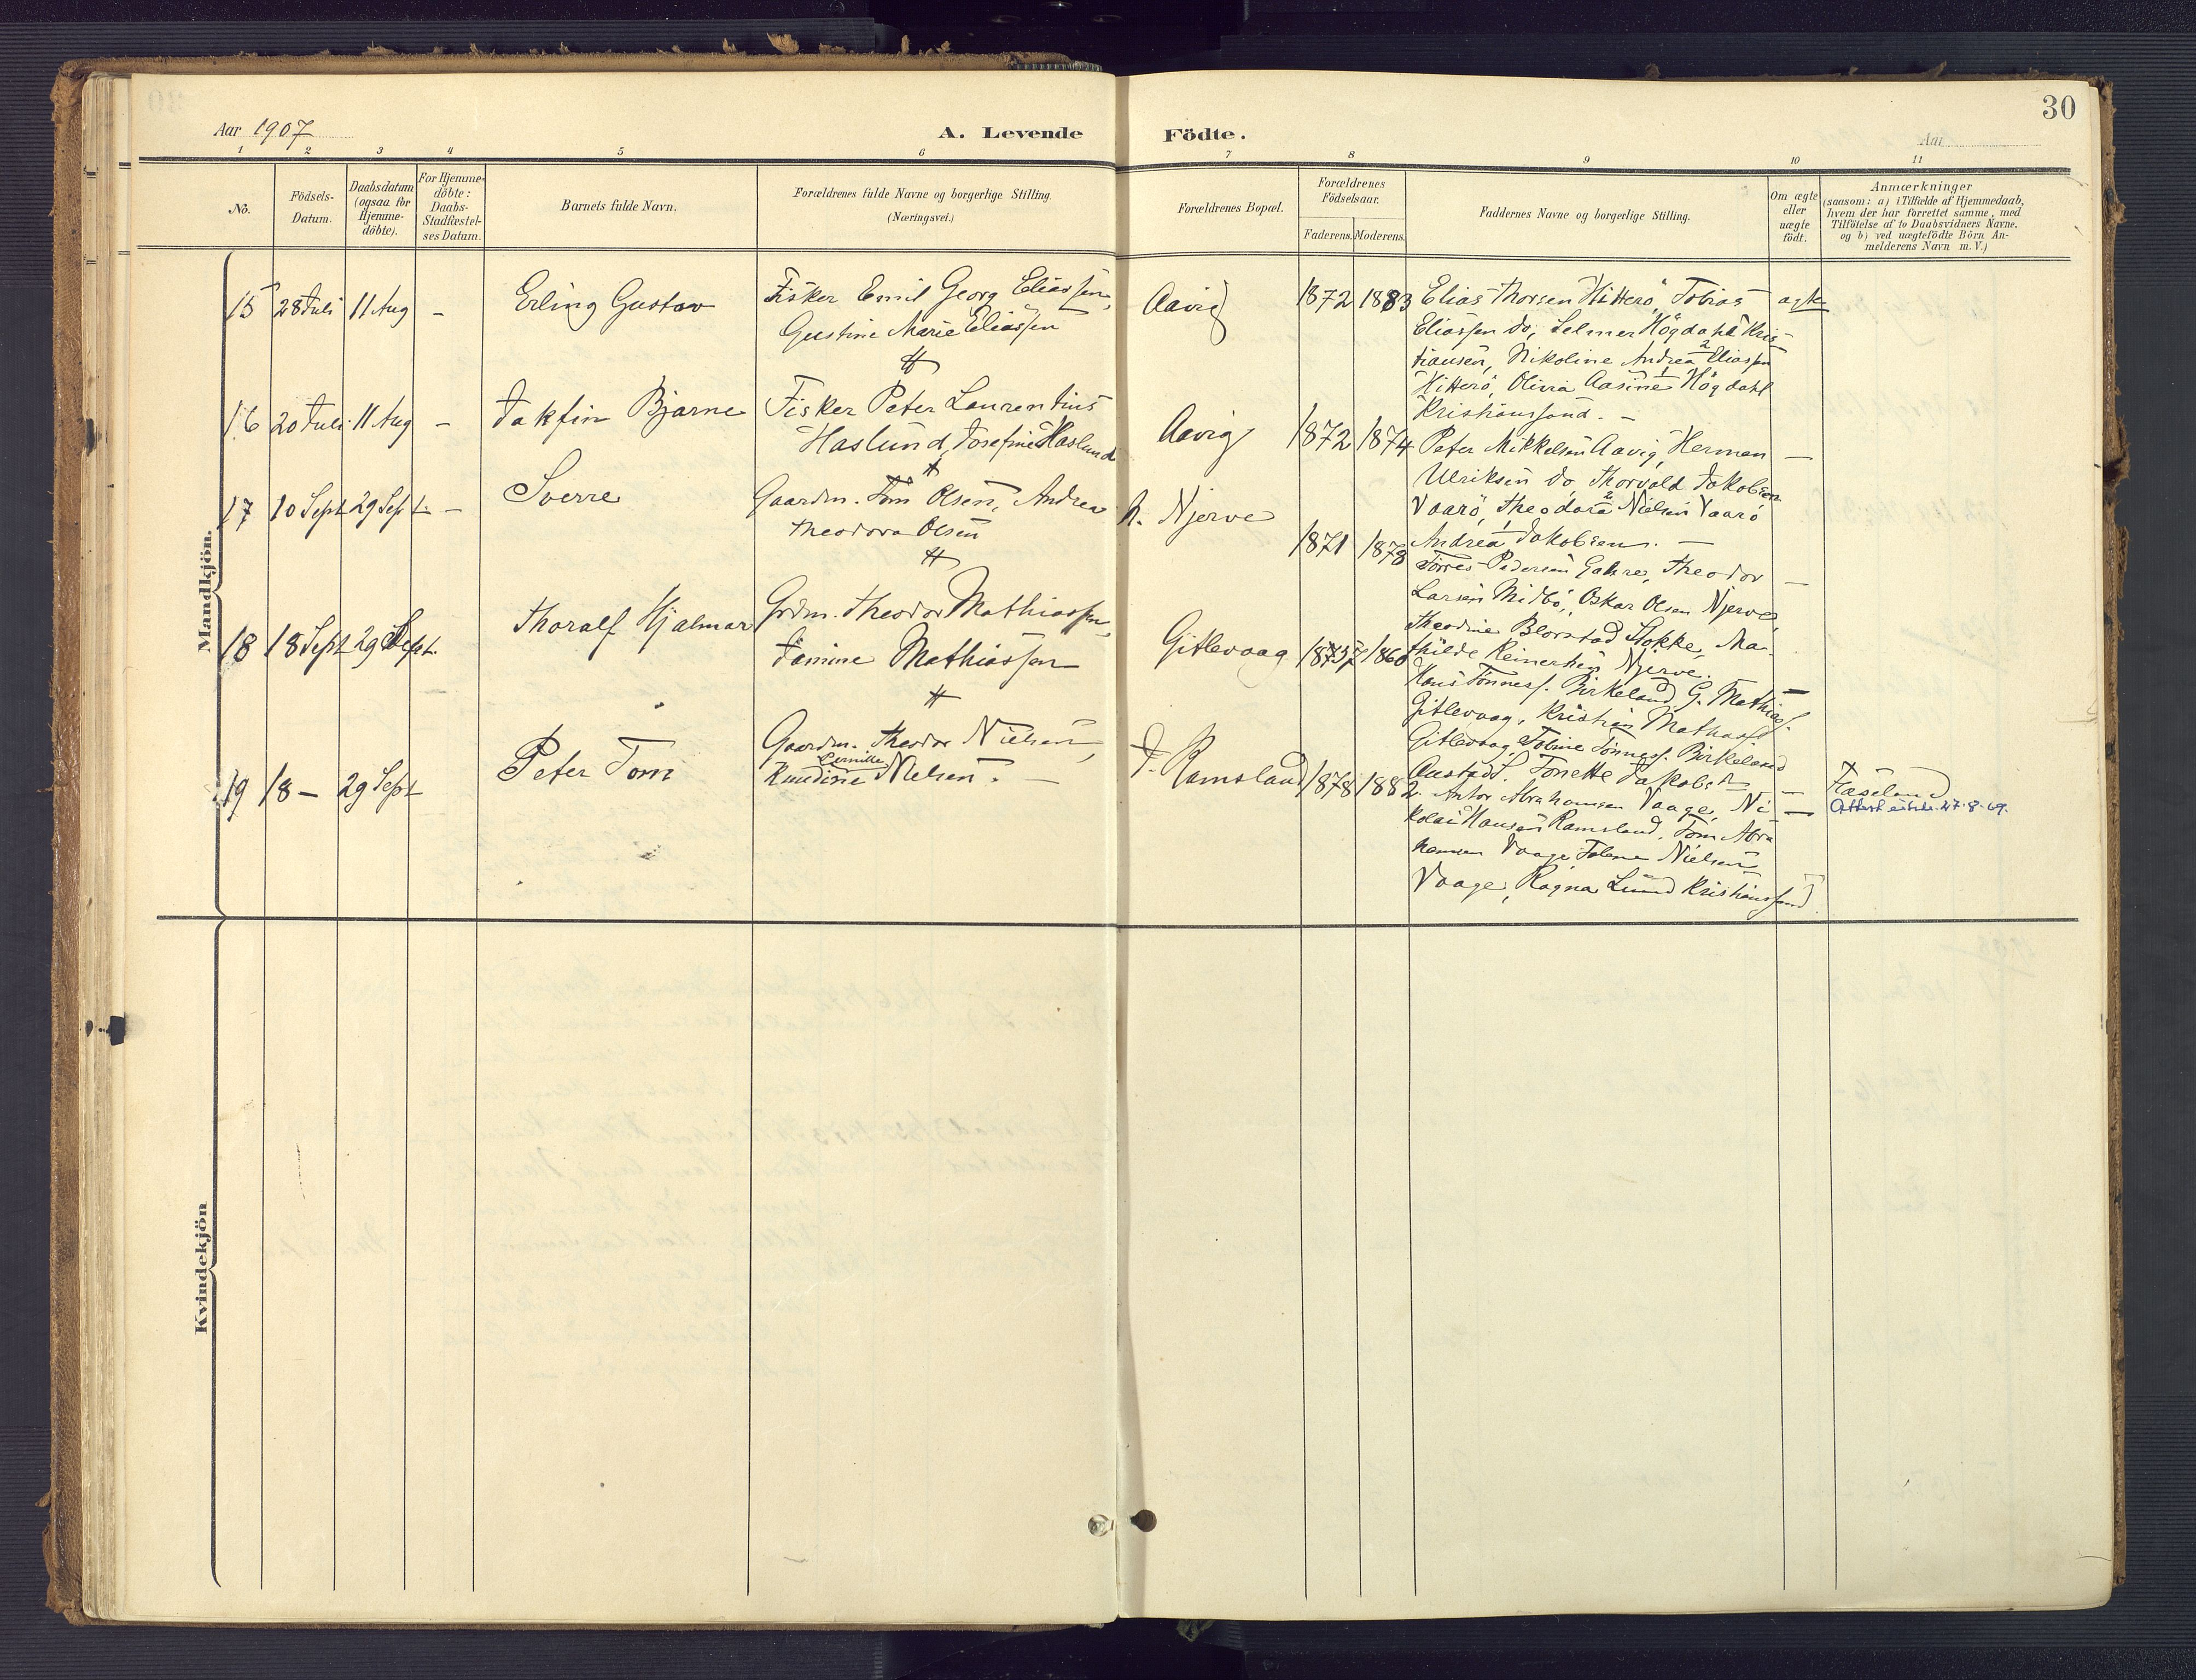 30
Aar 1907
A. Levende Födte.
Aar
1 2 3 4 5 6 7 8 9 10 11
No.
Födsels-Datum.
Daabsdatum (ogsaa for Hjemme-döbte).
For Hjemme-döbte: Daabs-Stadfæstel-ses Datum.
Barnets fulde Navn.
Forældrenes fulde Navne og borgerlige Stilling. (Næringsvei.)
Forældrenes Bopæl.
Forældrenes Födselsaar.
Faderens. Moderens.
Faddernes Navne og borgerlige Stilling.
Om ægte eller uægte födt.
Anmærkninger
(saasom: a) i Tilfælde af Hjemmedaab,
hvem der har forrettet samme, med
Tilföielse af to Daabsvidners Navne.
og b) ved uægtefödte Börn An-
melderens Navn m. V.)
Mandkjön.
15 28 Juli 11 Aug - Erling Gustav
Fisker Emil Georg Eliassen,
Gustine Marie Eliassen
Aavig 1872 1883
Elias Thorsen Hitterö, Tobias
Eliassen do, Selmer Högdahl Kris-
tiansen, Nikoline Andrea Eliassen
Hitterö, Olivia Aasine Högdahl
Kristianssand. -
ægte
16 20 Juli 11 Aug - Jakfin Bjarne
Fisker Peter Laurentius
Haslund, Josefine Haslund
Aavig 1872 1874
Peter Mikkelsen Aavig, Herman
Ulriksen do, Thorvald Jakobsen
Vaarö, Theodora Nielsen Vaarö
Andrea Jakobsen. -
-
17 10 Sept 29 Sept. - Sverre
Gaardm. Tom Olsen, Andrea
Theodora Olsen
N. Njerve 1871 1878
Törres Pedersen Gahre, Theodor
Larsen Midbö, Oskar Olsen Njerve,
Theodine Blorstad Stokke, Ma-
thilde Reinertsen Njerve.
-
18 18 Sept 29 Sept. Thoralf Hjalmar
Grdm. Theodor Mathiassen,
Jamine Mathiassen
Gitlevaag 1860
Hans Tönness. Birkeland, G. Mathias.
Gitlevaag, Kristian Mathias
Gitlevaag, Tobine Tönness. Birkeland
Austad. Tonette Jakobs.
-
19 18 - 29 Sept Peter Tom
Gaardm. Theodor Nielsen,
Pernille
Nielsen. -
Ramsland 1878 1882
Antor Abrahamsen Vaage, Ni-
kolai Hansen Ramsland, Tom Abra
hamsen Vaage, Nielsen
Vaage, Ragna Lund Kristianssand.
-
Attest utst. 27-8-69.
Kvindekjön